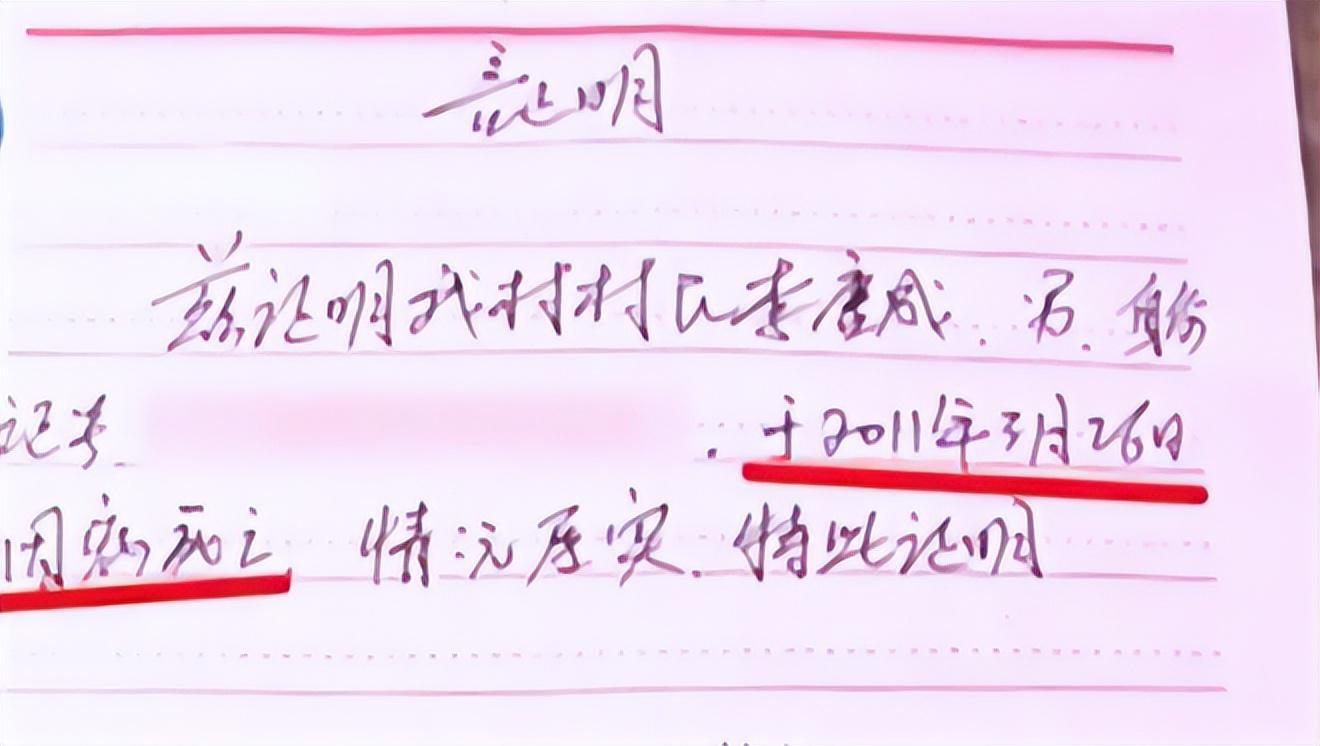 证明
兹证明我村村民李彦成.男.身份
记号 .于2011年3月26日
因病死亡 情况属实.特此证明